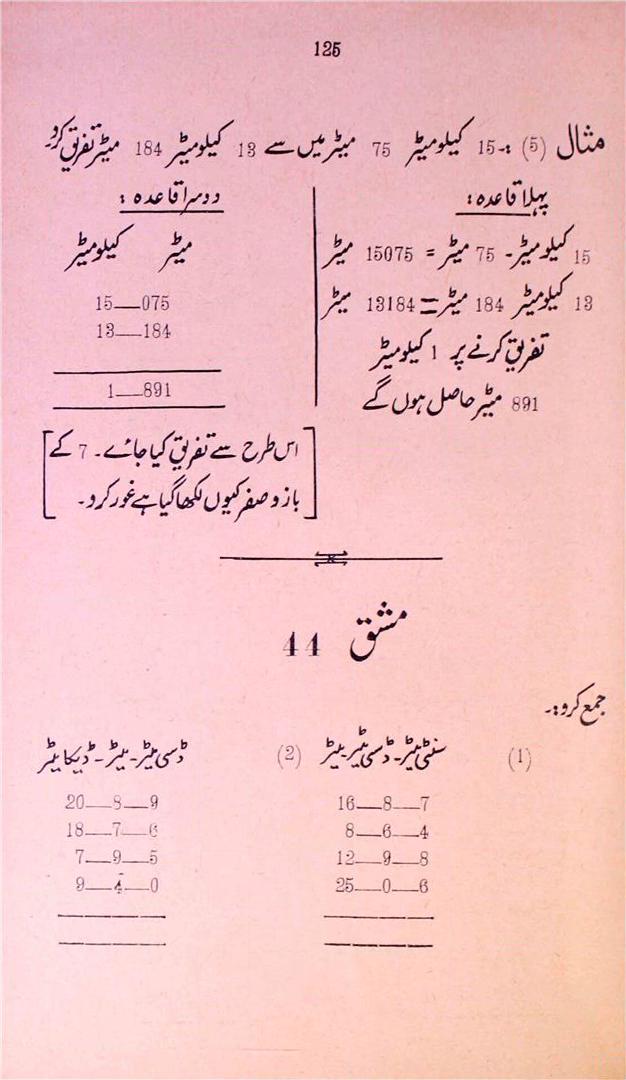 125
مثال (5) :۔ 15 کیلومیٹر 75 میٹر میں سے 13 کیلومیٹر 184 میٹر تفریق کرو۔
پہلا قاعدہ :
15 کیلومیٹر۔ 75 میٹر = 15075 میٹر
13 کیلومیٹر 184 میٹر = 13184 میٹر
تفریق کرنے پر 1 کیلومیٹر
891 میٹر حاصل ہوں گے
دوسرا قاعدہ :
میٹر کیلومیٹر
15—075
13—184
1—891
[اس طرح سے تفریق کیا جائے۔ 7 کے
بازو صفر کیوں لکھا گیا ہے غور کرو۔]
مشق 44
جمع کرو :۔
(1) سنٹی میٹر۔ ڈسی میٹر۔ میٹر
16—8—7
8—6—4
12—9—8
25—0—6
(2) ڈسی میٹر۔ میٹر۔ ڈیکا میٹر
20—8—9
18—7—6
7—9—5
9—4—0